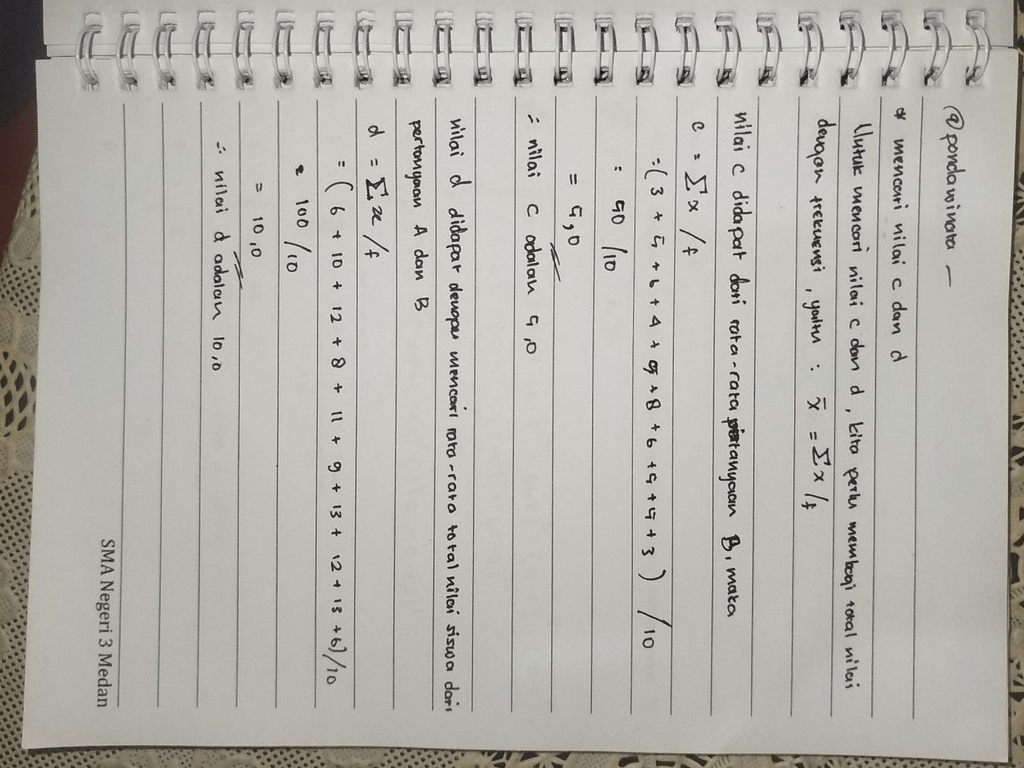 @pandawinata —
* mencari nilai c dan d
Untuk mencari nilai c dan d, kita perlu membagi total nilai
dengan frekuensi, yaitu : x̄ = Σx/f
nilai c didapat dari rata-rata pertanyaan B, maka
c = Σx/f
= (3 + 5 + 6 + 4 + 5 + 8 + 6 + 5 + 5 + 3) /10
= 50 /10
= 5,0
∴ nilai c adalah 5,0
nilai d didapat dengan mencari rata-rata total nilai siswa dari
pertanyaan A dan B
d = Σx/f
= (6 + 10 + 12 + 8 + 11 + 9 + 13 + 12 + 13 + 6)/10
= 100/10
= 10,0
∴ nilai d adalah 10,0
SMA Negeri 3 Medan